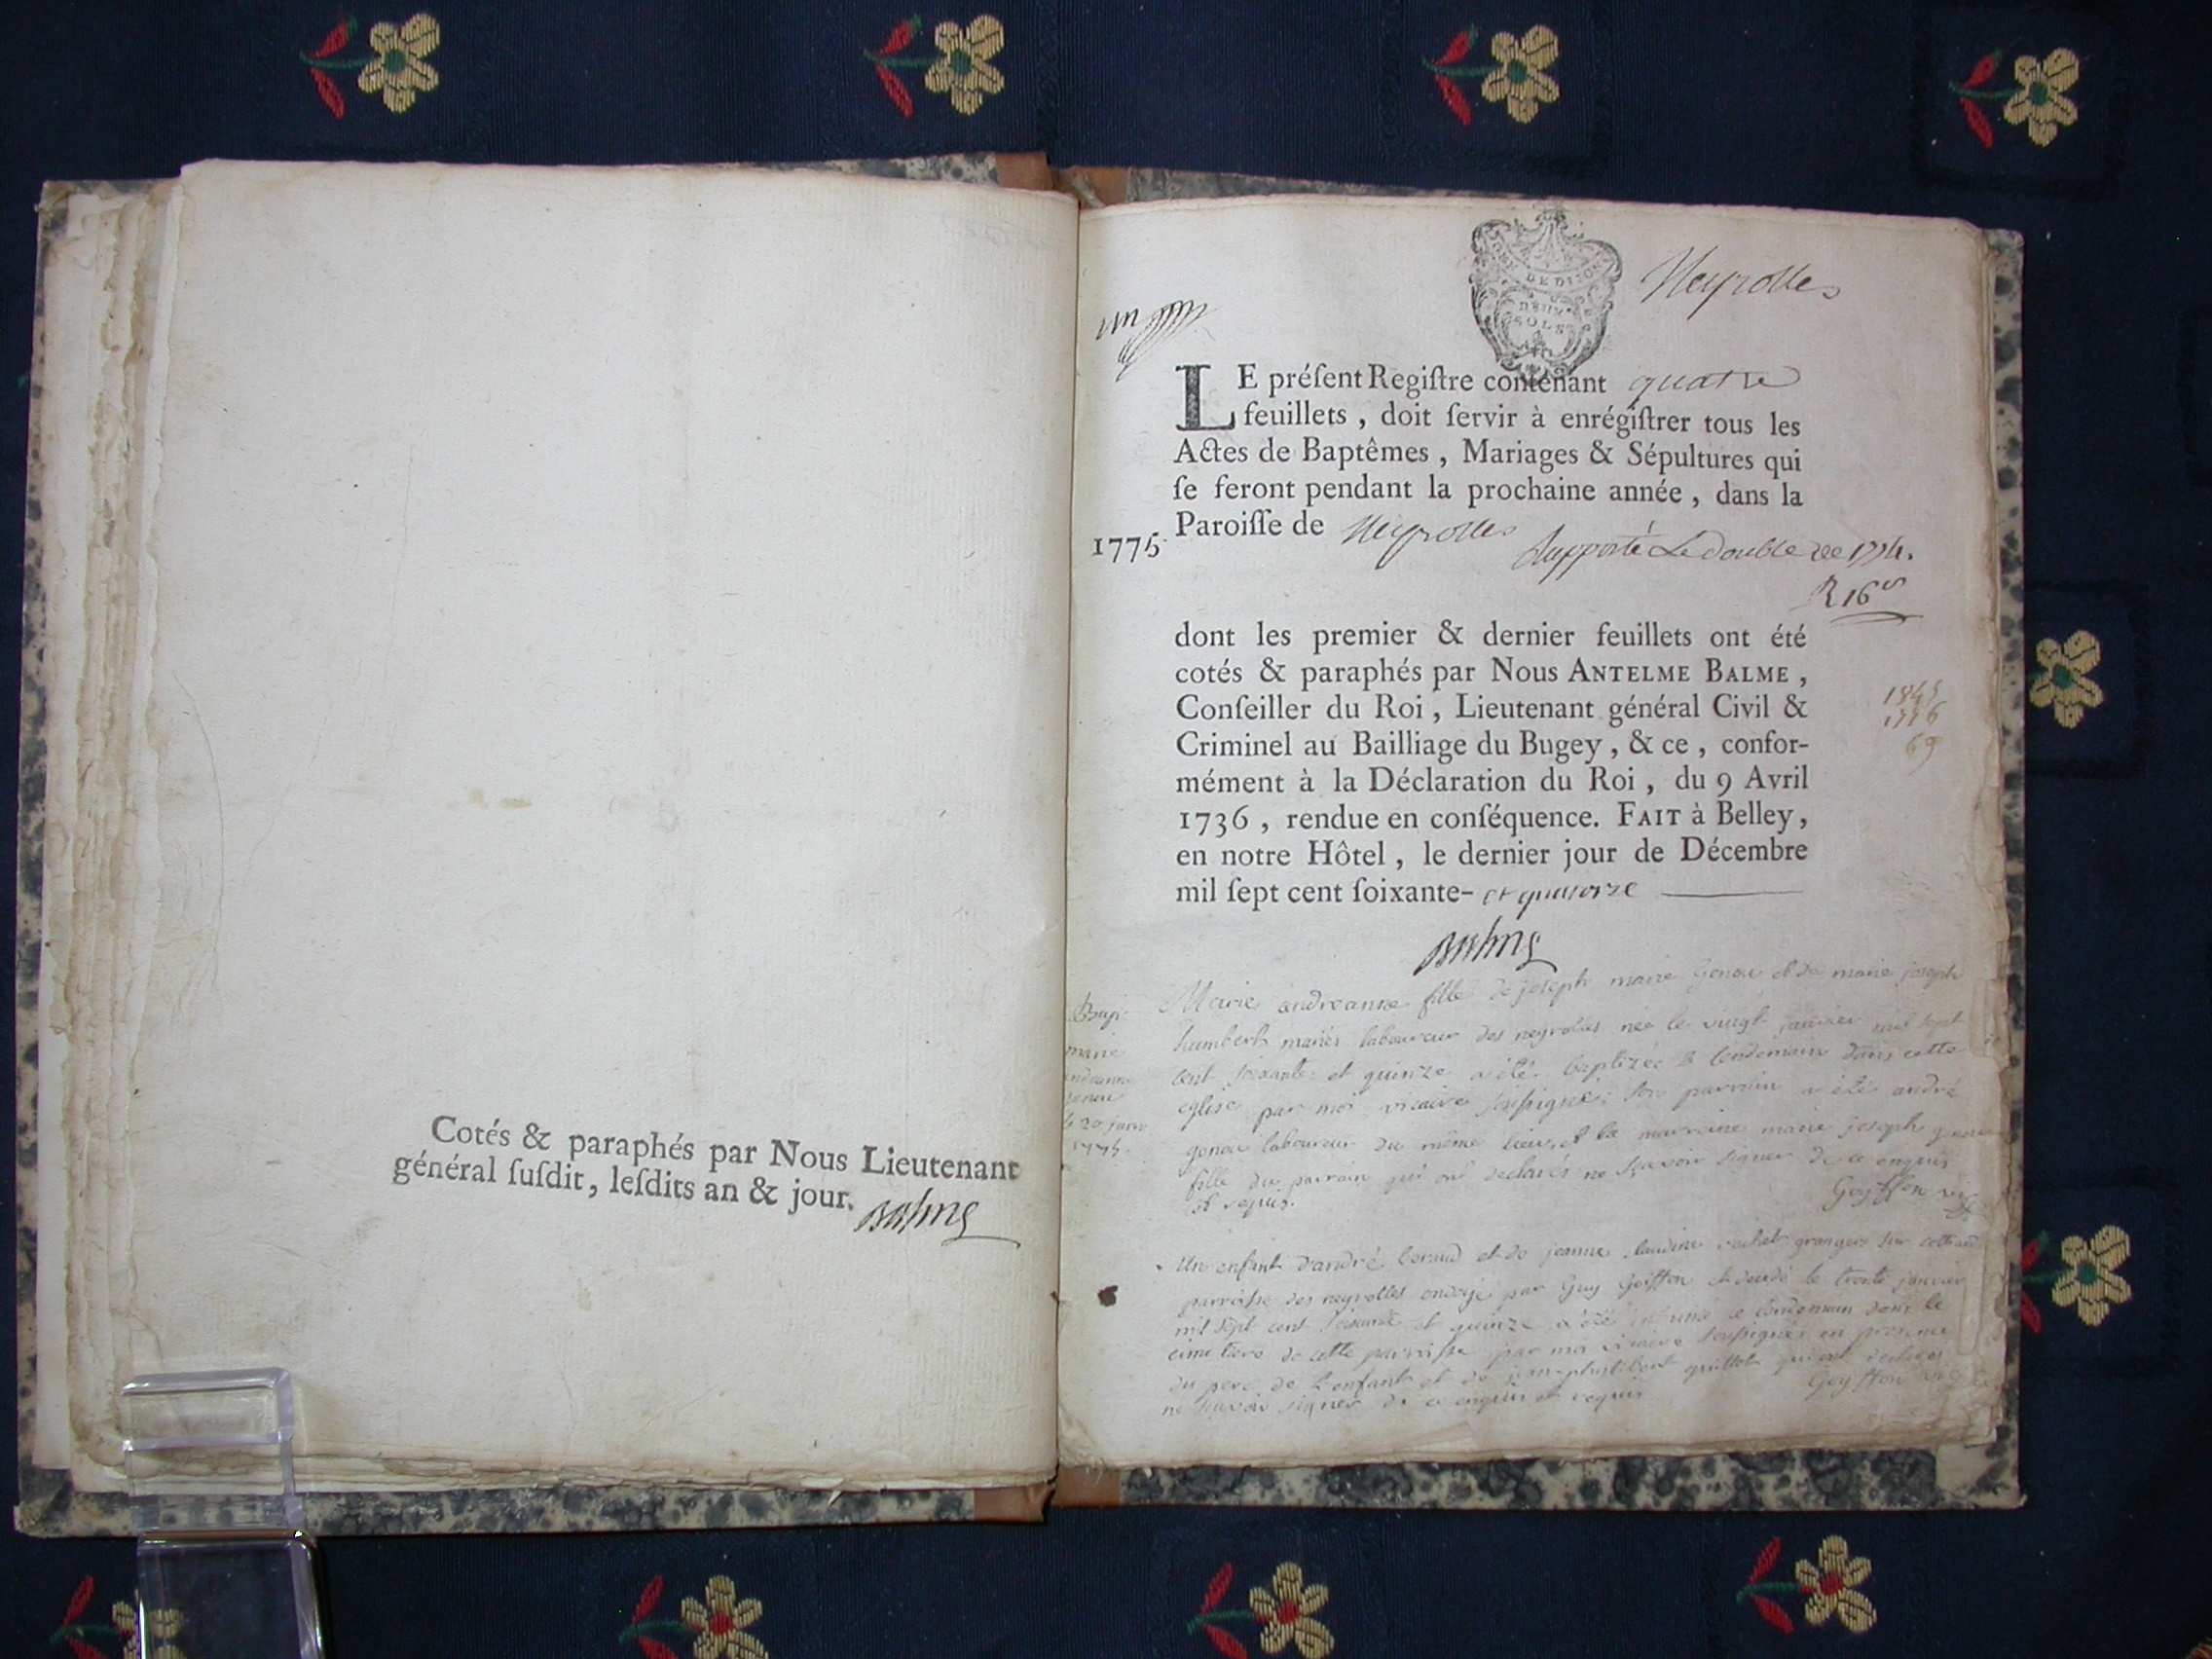 Cotés & paraphés par Nous Lieutenant
général ſuſdit, leſdits an & jour.
Balme
un
GEN. DE DIJON
DEUX
SOLS
Neyrolles
LE préſent Regiſtre contenant quatre
feuillets, doit ſervir à enrégiſtrer tous les
Actes de Baptêmes, Mariages & Sépultures qui
ſe feront pendant la prochaine année, dans la
1775 Paroiſſe de Neyrolles
Apporté Le Double de 1774.
R 16 s
dont les premier & dernier feuillets ont été
cotés & paraphés par Nous ANTELME BALME,
Conſeiller du Roi, Lieutenant général Civil &
Criminel au Bailliage du Bugey, & ce, confor-
mément à la Déclaration du Roi, du 9 Avril
1736, rendue en conſéquence. FAIT à Belley,
en notre Hôtel, le dernier jour de Décembre
mil ſept cent ſoixante- et quatorze
Balme
69
Bap.
marie
andreanne
genou
le 20 janv.
1775.
Marie andreanne fille de joseph marie genou et de marie joseph
humbert mariés laboureur des neyrolles née le vingt janvier mil sept
cent soixante et quinze a été baptizée le lendemain dans cette
eglise par moi vicaire soussigné; son parrain a été andré
genou laboureur du même lieu, et la marraine marie joseph genou
fille du parrain qui ont declarés ne sçavoir signer de ce enquis
et requis.
Goyffon vic
Un enfant d'andré beraud et de jeanne claudine grangers sur
parroisse des neyrolles ondoyé par Guy Goiffon et decedé le trente janvier
mil sept cent soixante et quinze a été inhumé le lendemain dans le
cimetiere de cette parroisse par moi vicaire soussigné en presence
du pere de l'enfant et de jean philibert guillot qui ont declarés
ne sçavoir signer de ce enquis et requis
Goyffon vic